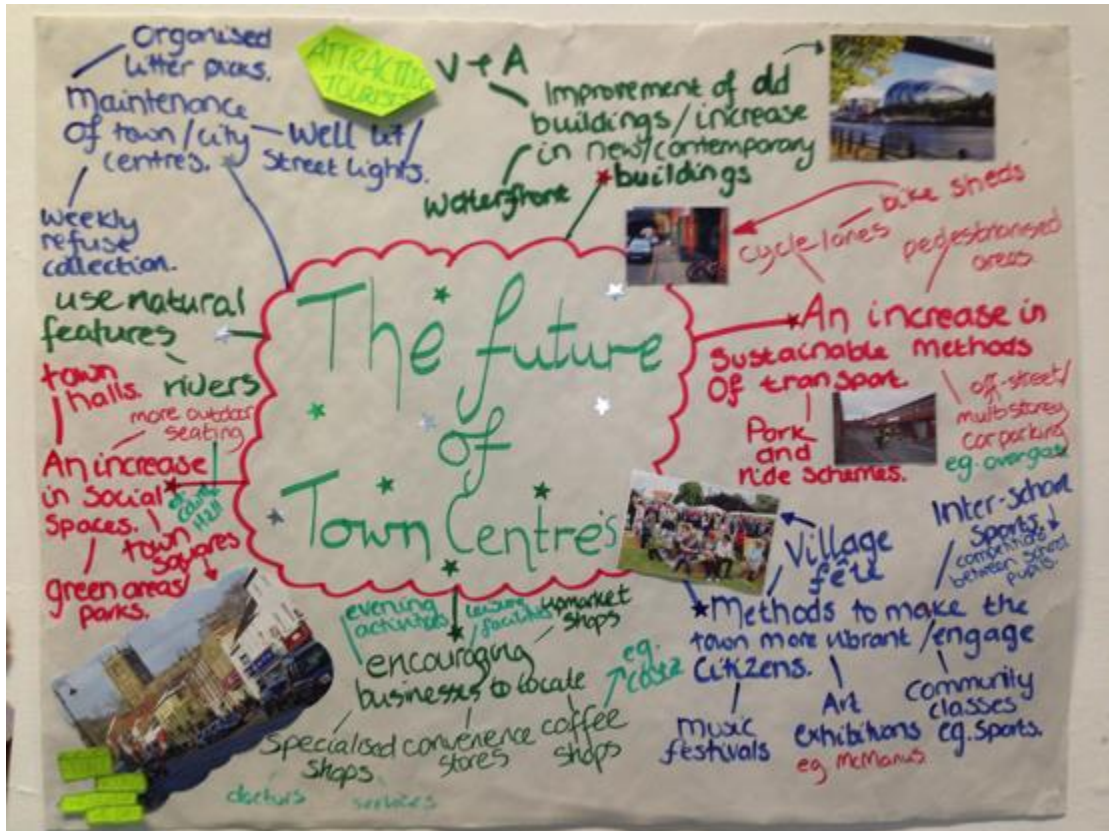 Organised
litter picks.
Maintenance
of town/city
centres.
Well lit/
Street Lights.
Weekly
refuse
collection.
ATTRACTING
TOURISTS
V+A
Improvement of old
buildings/increase
in new/contemporary
buildings
Waterfront
bike sheds
cycle lanes
pedestrianised
areas
An increase in
Sustainable methods
Of transport.
off-street/
multistorey
car parking
eg. overgate
Park
and
ride schemes.
use natural
features
rivers
The future
of
Town Centre's
town
halls.
more outdoor
seating
An increase
in Social
Spaces.
town
squares
green areas/
parks.
Inter-school
sports
competitions
between school
pupils.
Village
fête
Methods to make the
town more vibrant/engage
Citizens.
music
festivals
Art
exhibitions
eg McManus
Community
classes
eg. Sports.
evening
activities
leisure
facilities
upmarket
shops
encouraging
businesses to locate
eg.
costa
Specialised
shops
convenience
stores
coffee
shops
doctors
services